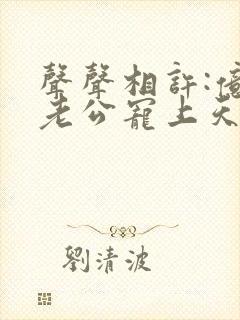 聲聲相許:億
老公寵上天
劉清波